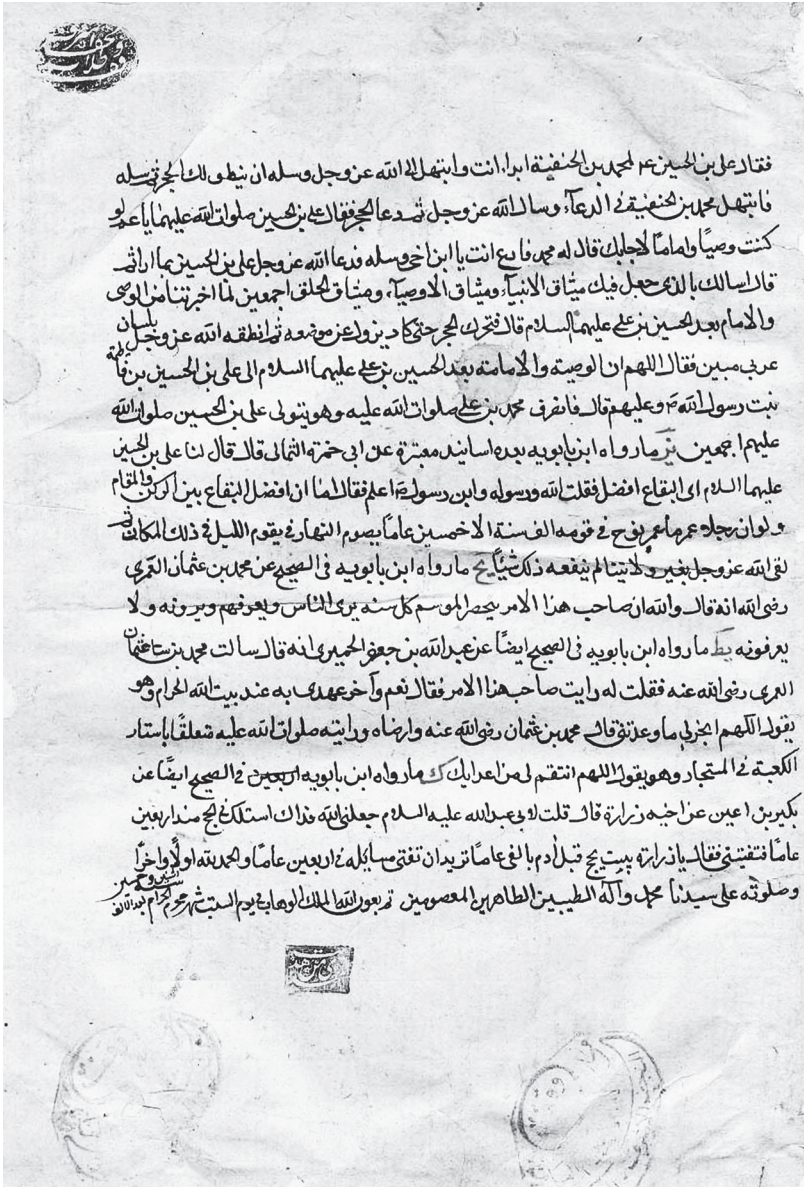 فقال على بن الحسين ع لمحمد بن الحنفية ابداء انت وابتهل الى الله عز وجل وسله ان ينطق لك الحجر ثم سله
فابتهل محمد بن الحنفية فى الدعآء وسال الله عز وجل ثم دعا الحجر فقال على بن الحسين صلوات الله عليهما يا عم لو
كنت وصيًا واماماً لاجابك قال له محمد فادع انت يا ابن اخى وسله فدعا الله عز وجل على بن الحسين بما اراد ثم
قال اسالك بالذى جعل فيك ميثاق الانبيآء وميثاق الاوصيآء وميثاق الخلق اجمعين لما اخبرتنا من الوصى
والامام بعد الحسين بن على عليهما السلام قال فتحرك الحجر حتى كاد يزول عن موضعه ثم انطقه الله عز وجل بلسان
عربى مبين فقال اللهم ان الوصية والامامة بعد الحسين بن على عليهما السلام الى على بن الحسين بن فاطمة
بنت رسول الله ص وعليهم قال فانصرف محمد بن على صلوات الله عليه وهو يتولى على بن الحسين صلوات الله
عليهم اجمعين يز ما رواه ابن بابويه بعده اسانيد معتبرة عن ابى حمزة الثمالى قال قال لنا على بن الحسين
عليهما السلام اى البقاع افضل فقلت الله ورسوله وابن رسوله اعلم فقال لنا ان افضل البقاع بين الركن والمقام
ولو ان رجلا عمر ما عمر نوح فى قومه الف سنة الا خمسين عاماً يصوم النهار ويقوم الليل فى ذلك المكان ثم
لقى الله عز وجل بغير ولايتنا لم ينفعه ذلك شيئاً يح ما رواه ابن بابويه فى الصحيح عن محمد بن عثمان العمرى
رضى الله انه قال والله ان صاحب هذا الامر يحضر الموسم كل سنه يرى الناس ويعرفهم ويرونه ولا
يعرفونه يط ما رواه ابن بابويه فى الصحيح ايضًا عن عبد الله بن جعفر الحميرى انه قال سالت محمد بن عثمان
العمرى رضى الله عنه فقلت له رايت صاحب هذا الامر فقال نعم وآخر عهدى به عند بيت الله الحرام وهو
يقول اللهم انجز لى ما وعدتنى قال محمد بن عثمان رضى الله عنه وارضاه ورايته صلوات الله عليه متعلقًا باستار
الكعبة فى المستجار وهو يقول اللهم انتقم لى من اعدايك ك ما رواه ابن بابويه فى الصحيح ايضًا عن
بكير بن اعين عن اخيه زرارة قال قلت لابى عبد الله عليه السلام جعلنى الله فداك اسئلك فى الحج منذ اربعين
عامًا فتفتينى فقال يا زرارة بيت يحج قبل آدم بالفى عاماً تريدان تفتى مسايله فى اربعين عامًا والحمد لله اولًا واخرًا
وصلوته على سيدنا محمد وآله الطيبين الطاهرين المعصومين تم بعون الله الملك الوهاب فى يوم السبت شهر محرم الحرام بعد الالف